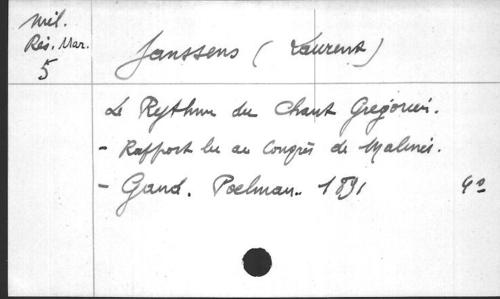 Mil.
Rés. Mar.
5
Janssens (Laurent)
Le Rythme du Chant Grégorien.
- Rapport lu au Congrès de Malines.
- Gand. Poelman. 1891
4º